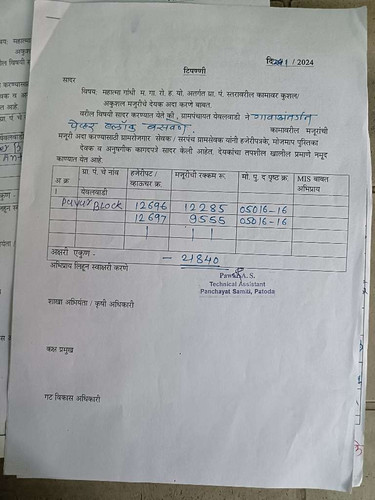 दि. /2024
टिपण्णी
सादर
विषय: महात्मा गांधी म. गा. रो. ह. यो. अंतर्गत ग्रा. पं. स्तरावरील कामावर कुशल/
अकुशल मजुरीचे देयक अदा करणे बाबत.
वरील विषयी सादर करण्यात येते की, ग्रामपंचायत येवलवाडी ने गावाअंतर्गत
पेव्हर ब्लॉक बसवणे कामावरील मजुरांची
मजुरी अदा करण्यासाठी ग्रामरोजगार सेवक / सरपंच ग्रामसेवक यांनी हजेरीपत्रके, मोजमाप पुस्तिका
देयक व अनुषंगीक कागदपत्रे सादर केली आहेत. देयकांचा तपशील खालील प्रमाणे नमूद
करण्यात येत आहे
अ.क्र. ग्रा. पं. चे नांव हजेरीपट / व्हाऊचर क्र. मजूरीची रक्कम रू. मो. पु. द पृष्ट क्र. MIS बाबत अभिप्राय
1 येवलवाडी
Block 12696 12285 05016-16
12697 9555 05016-16
अक्षरी एकुण - 21840
अभिप्राय लिहून स्वाक्षरी करणे
Pawar A. S.
Technical Assistant
Panchayat Samiti, Patoda
शाखा अभियंता / कृषी अधिकारी
कक्ष प्रमुख
गट विकास अधिकारी